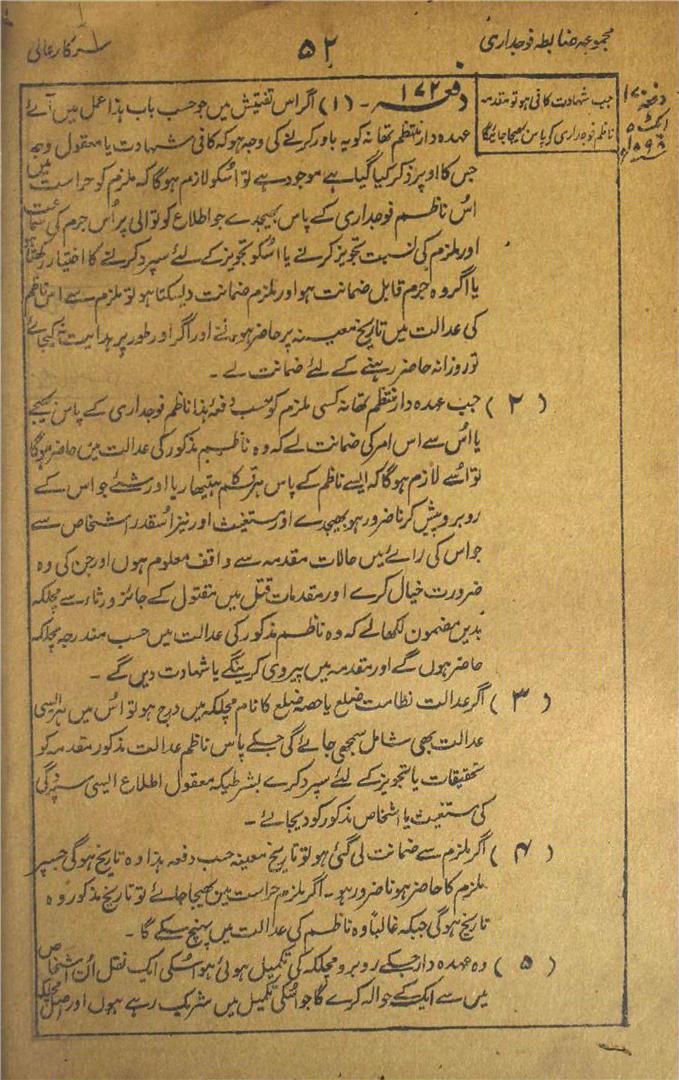 مجموعہ ضابطہ فوجداری
۵۲
سرکار عالی
دفعہ ۱۷۰
ایکٹ ۵
۱۸۹۸ء
جب شہادت کافی ہو تو مقدمہ
ناظم فوجداری کے پاس بھیجا جائیگا
دفعہ ۱۷۲ ۔ (۱) اگر اس تفتیش میں جو حسب باب ہذا عمل میں آئے
عہدہ دار منتظم تھانہ کو یہ باور کرنے کی وجہ ہو کہ کافی شہادت یا معقول وجہ
جس کا اوپر ذکر کیا گیا ہے موجود ہے تو اسکو لازم ہوگا کہ ملزم کو حراست میں
اس ناظم فوجداری کے پاس بھیجدے جو اطلاع کوتوالی پر اُس جرم کی سماعت
اور ملزم کی نسبت تجویز کرنے یا اسکو تجویز کے لئے سپرد کرنے کا اختیار رکھتا ہو
یا اگر وہ جرم قابل ضمانت ہو اور ملزم ضمانت دیسکتا ہو تو ملزم سے اس ناظم
کی عدالت میں تاریخ معینہ پر حاضر ہونے اور اگر اور طور پر ہدایت نہ کیجائے
تو روزانہ حاضر رہنے کے لئے ضمانت لے ۔
(۲) جب عہدہ دار منتظم تھانہ کسی ملزم کو حسب دفعہ ہذا ناظم فوجداری کے پاس بھیجے
یا اُس سے اس امر کی ضمانت لے کہ وہ ناظم مذکور کی عدالت میں حاضر ہوگا
تو اُسے لازم ہوگا کہ ایسے ناظم کے پاس ہر قسم ہتیھار یا اور شئے جو اس کے
روبرو پیش کرنا ضرور ہو بھیجدے اور مستغیث اور نیز اسقدر اشخاص سے
جو اس کی رائے میں حالات مقدمہ سے واقف معلوم ہوں اور جن کی وہ
ضرورت خیال کرے اور مقدمات قتل میں مقتول کے جائز ورثاء سے مچلکہ
بدیں مضمون لکھالے کہ وہ ناظم مذکور کی عدالت میں حسب مندرجہ مچلکہ
حاضر ہوں گے اور مقدمہ میں پیروی کرینگے یا شہادت دیں گے ۔
(۳) اگر عدالت نظامت ضلع یا حصہ ضلع کا نام مچلکہ میں درج ہو تو اُس میں ہر ایسی
عدالت بھی شامل سمجھی جائے گی جسکے پاس ناظم عدالت مذکور مقدمہ کو
تحقیقات یا تجویز کے لئے سپرد کرے بشرطیکہ معقول اطلاع ایسی سپردگی
کی مستغیث یا اشخاص مذکور کو دیجائے ۔
(۴) اگر ملزم سے ضمانت لی گئی ہو تو تاریخ معینہ حسب دفعہ ہذا وہ تاریخ ہوگی جسپر
ملزم کا حاضر ہونا ضرور ہو ۔ اگر ملزم حراست میں بھیجا جائے تو تاریخ مذکور وہ
تاریخ ہوگی جبکہ غالباً وہ ناظم کی عدالت میں پہنچ سکے گا ۔
(۵) وہ عہدہ دار جسکے روبرو مچلکہ کی تکمیل ہوئی ہو اسکی ایک نقل اُن اشخاص
میں سے ایک کے حوالہ کرے گا جو اسکی تکمیل میں شریک رہے ہوں اور اصل مچلکہ